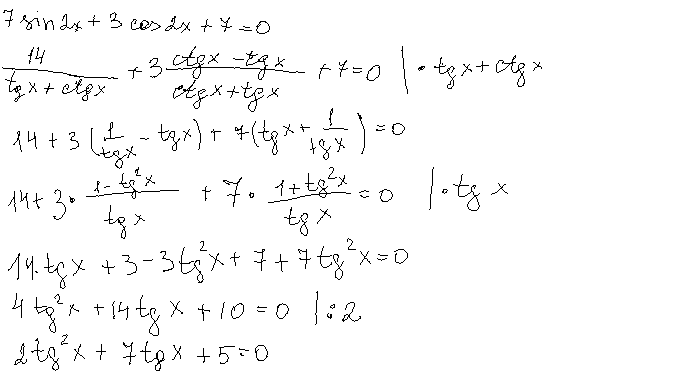 7 sin 2x + 3 cos 2x + 7 = 0
14/(tg x + ctg x) + 3 (ctg x - tg x)/(ctg x + tg x) + 7 = 0 | · tg x + ctg x
14 + 3 (1/tg x - tg x) + 7 (tg x + 1/tg x) = 0
14 + 3 · (1 - tg²x)/(tg x) + 7 · (1 + tg²x)/(tg x) = 0 | · tg x
14 · tg x + 3 - 3 tg²x + 7 + 7 tg²x = 0
4 tg²x + 14 tg x + 10 = 0 | : 2
2 tg²x + 7 tg x + 5 = 0